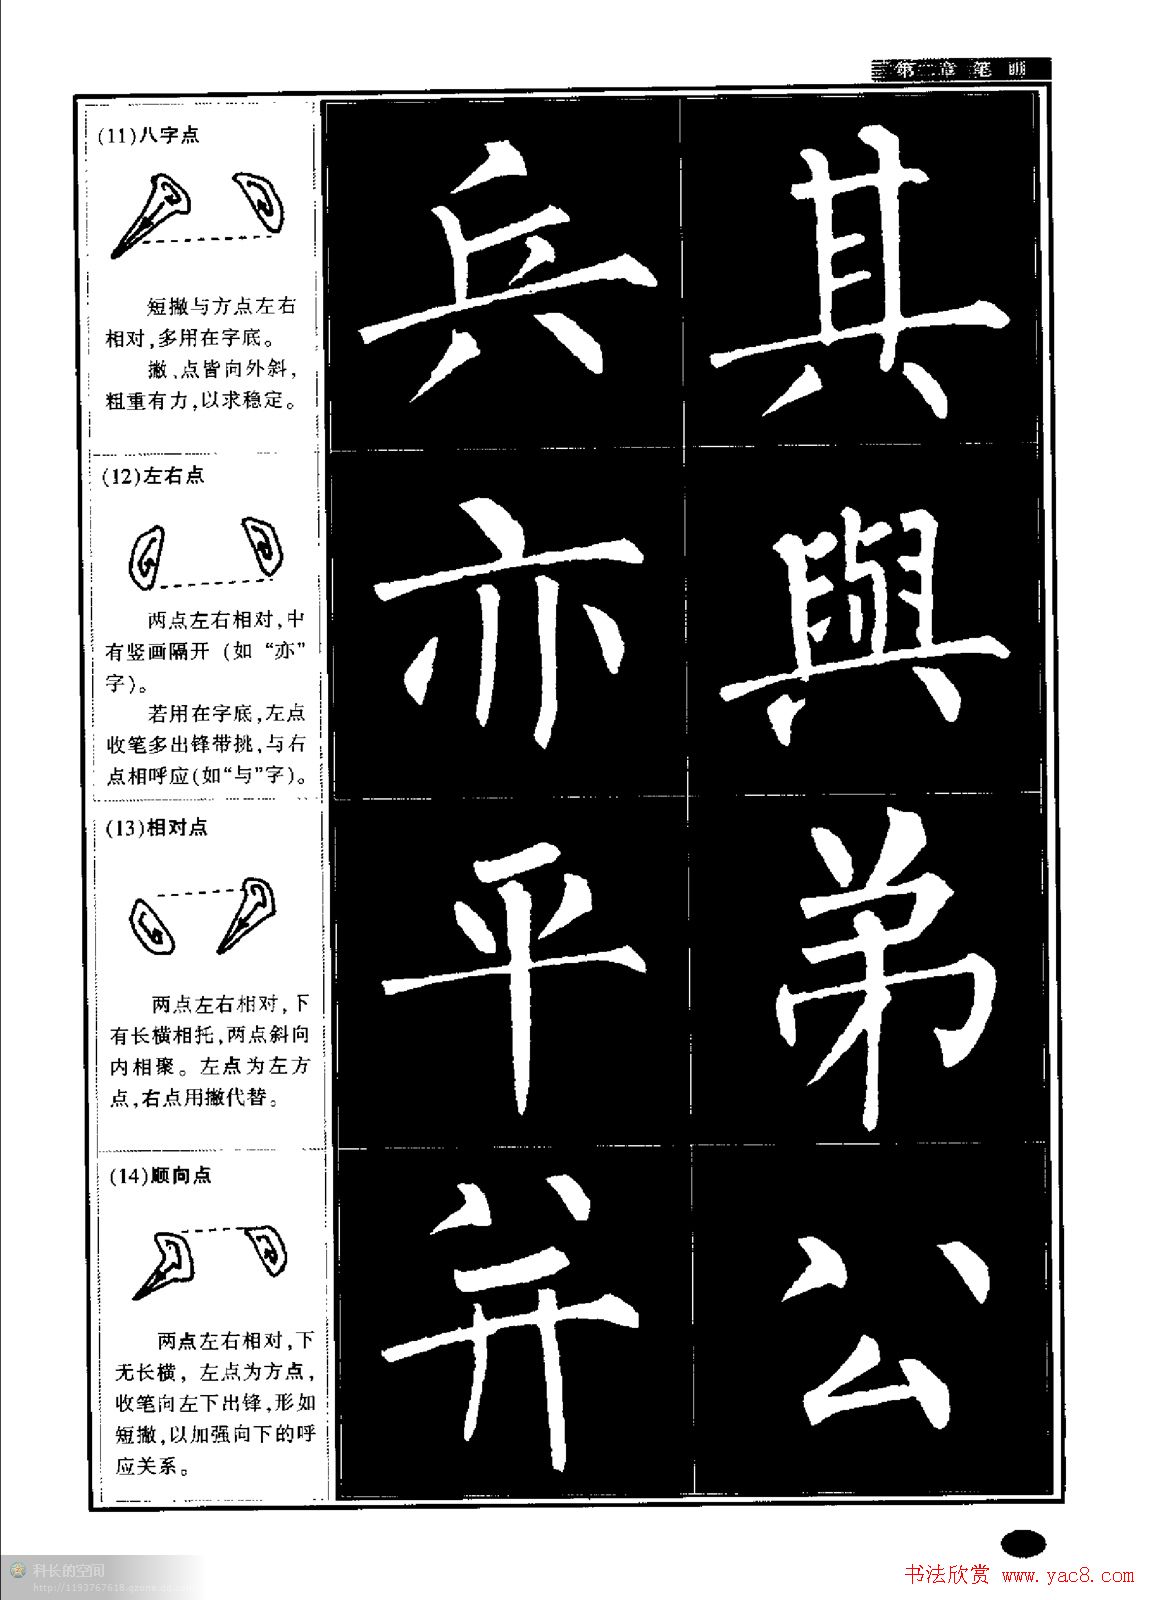 第二章笔画
(11)八字点
短撇与方点左右
相对,多用在字底。
撇、点皆向外斜,
粗重有力,以求稳定。
兵 其
(12)左右点
两点左右相对,中
有竖画隔开(如“亦”
字)。
若用在字底,左点
收笔多出锋带挑,与右
点相呼应(如“与”字)。
亦 與
(13)相对点
两点左右相对,下
有长横相托,两点斜向
内相聚。左点为左方
点,右点用撇代替。
平 弟
(14)顺向点
两点左右相对,下
无长横,左点为方点,
收笔向左下出锋,形如
短撇,以加强向下的呼
应关系。
并 公
科长的空间
http://1193767618.qzone.qq.com
书法欣赏 www.yac8.com